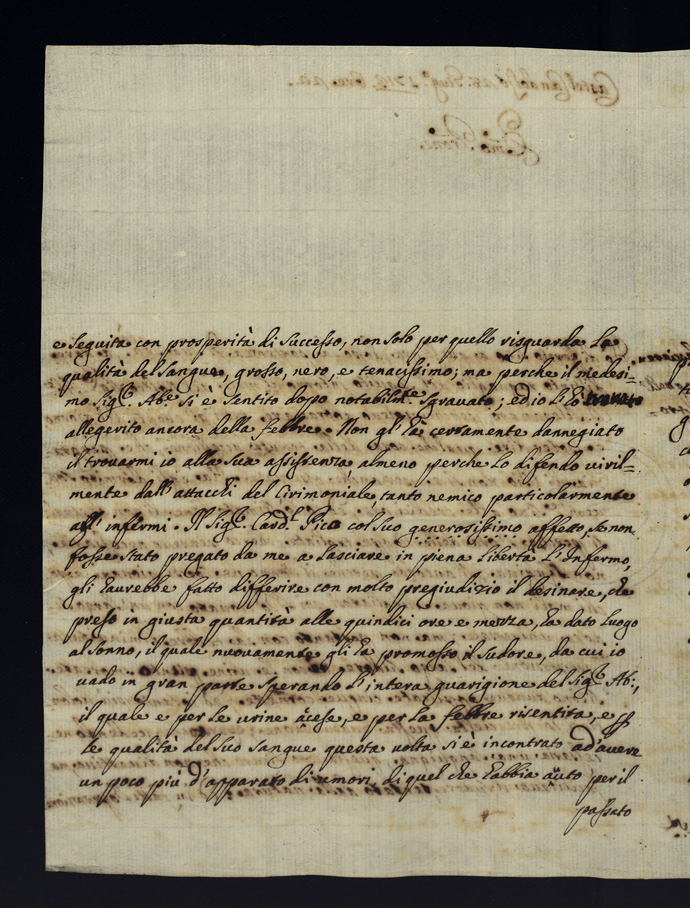 e seguita con prosperità di successo, non solo per quello risguarda la
qualità del sangue, grosso, nero, e tenacissimo; ma perche il medesi-
mo Sig.r Ab.e si è sentito dopo notabilm.te sgravato; ed io l'hò trovato
allegerito ancora della febbre. Non gl'hà certamente dannegiato
il trovarmi io alla sua assistenza, almeno perche lo difendo viril-
mente dall'attacchi del Cirimoniale, tanto nemico particolarmente
all'infermi. Il Sig.r Card.l Pico col suo generosissimo affetto, se non
fosse stato pregato da me a lasciare in piena libertà l'Infermo,
gli haurebbe fatto differire con molto pregiudizio il desinare, che
preso in giusta quantità alle quindici ore e mezza, hà dato luogo
al sonno, il quale nuovamente gli hà promosso il sudore, da cui io
vado in gran parte sperando l'intera guarigione del Sig.r Ab:,
il quale e per le urine accese, e per la febbre risentita, e p
le qualità del suo sangue questa volta si è incontrato ad'avere
un poco più d'apparato di umori, di quel che habbia auto per il
passato